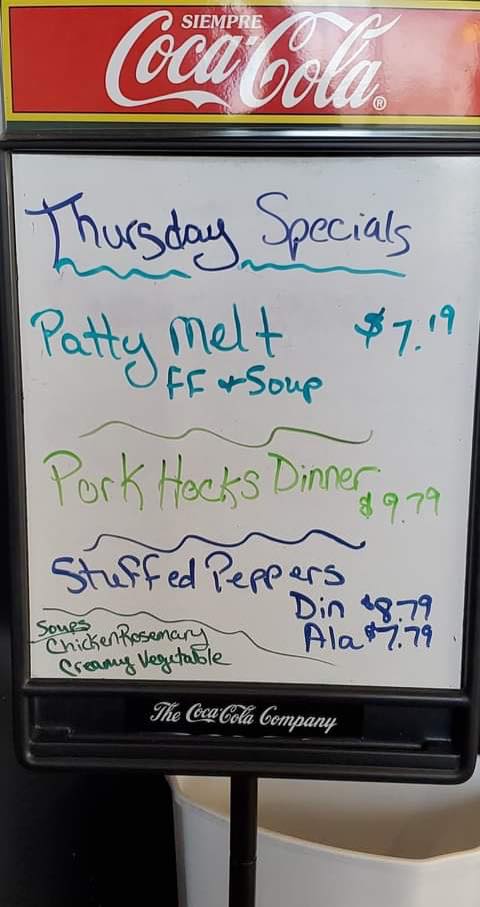 SIEMPRE
Coca-Cola®
Thursday Specials
Patty Melt $7.19
FF & Soup
Pork Hocks Dinner
$9.79
Stuffed Peppers
Din $8.79
Ala $7.79
Soups
Chicken Rosemary
Creamy Vegetable
The Coca-Cola Company